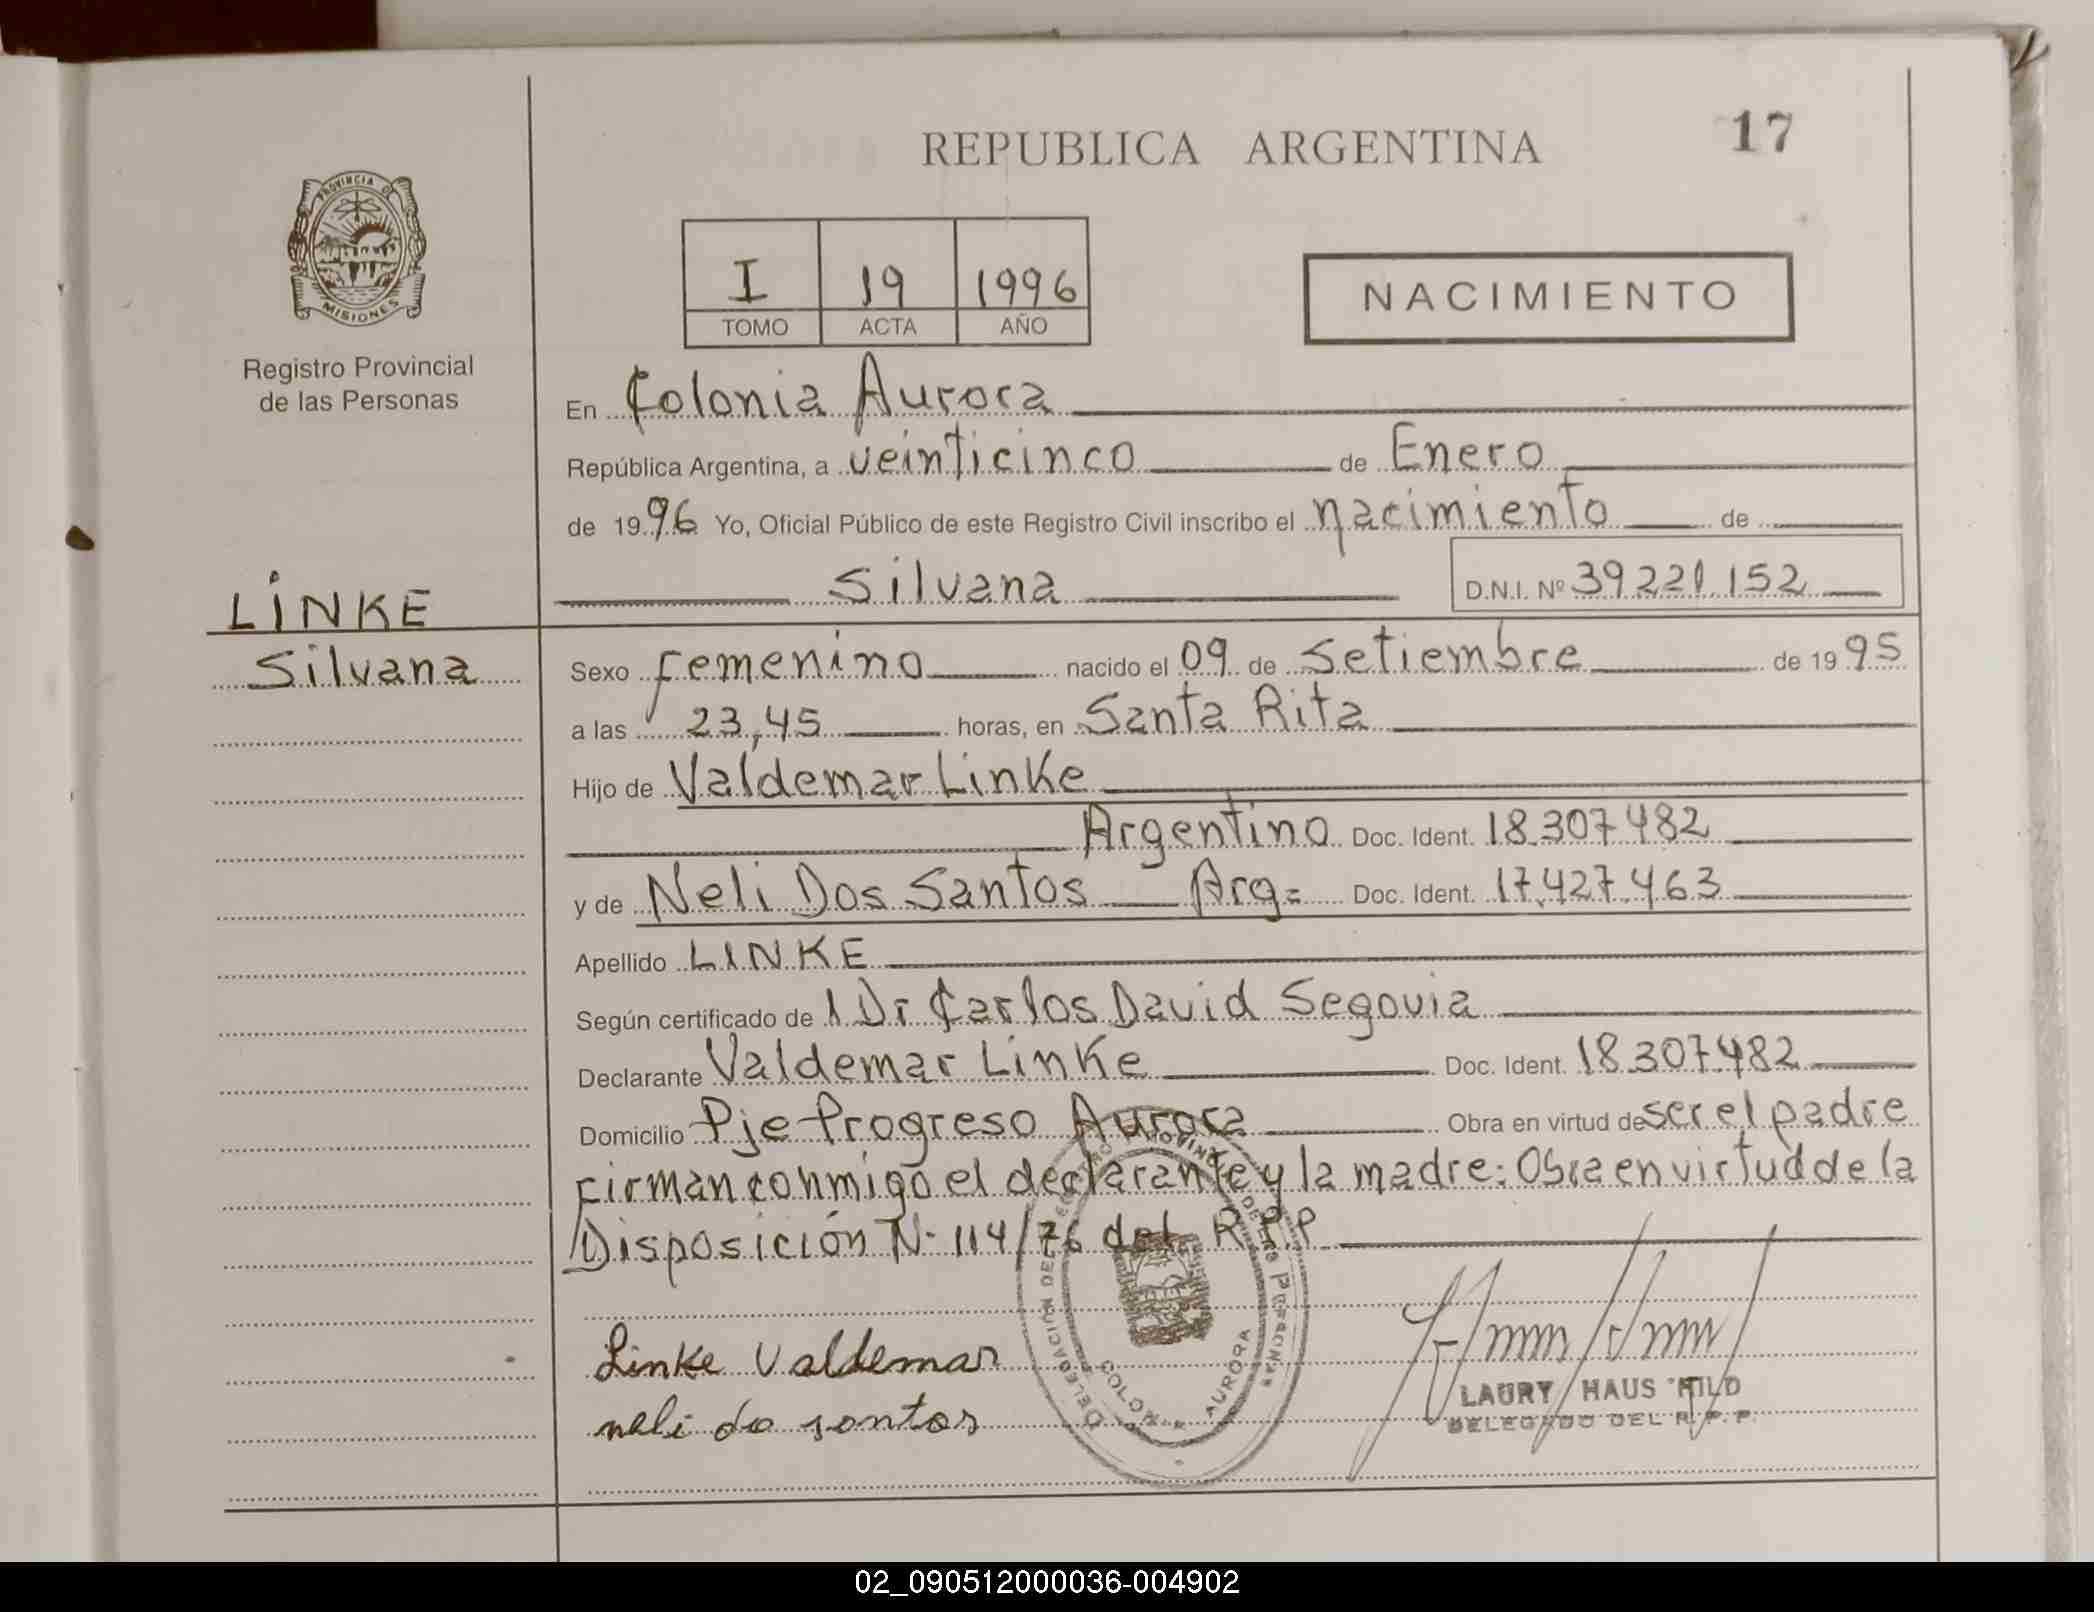 REPUBLICA ARGENTINA
17
PROVINCIA D
MISIONES
Registro Provincial
de las Personas
I 19 1996
TOMO ACTA AÑO
NACIMIENTO
En Colonia Aurora
República Argentina, a veinticinco de Enero
de 1996 Yo, Oficial Público de este Registro Civil inscribo el nacimiento de
Silvana D.N.I. Nº 39.221.152
LINKE
Silvana
Sexo femenino nacido el 09 de Setiembre de 1995
a las 23,45 horas, en Santa Rita
Hijo de Valdemar Linke
Argentino Doc. Ident. 18.307.482
y de Neli Dos Santos Arg= Doc. Ident. 17.427.463
Apellido LINKE
Según certificado de 1 Dr Carlos David Segovia
Declarante Valdemar Linke Doc. Ident. 18.307.482
Domicilio Pje Progreso Aurora Obra en virtud de ser el padre
firman conmigo el declarante y la madre: Obra en virtud de la
Disposición N- 114/76 del R.P.P
Linke Valdemar
neli do santos
COLONIA AURORA
LAURY HAUS HILD
DELEGADO DEL R.P.P.
02_090512000036-004902